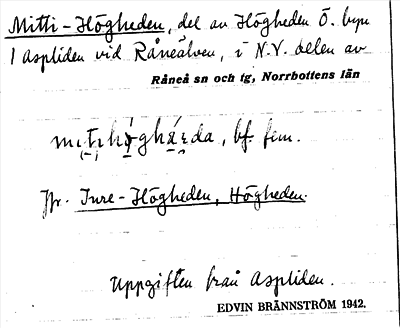 Mitti-Högheden, del av Högheden Ö. byn
i Aspliden vid Råneälven, i N.V. delen av
Råneå sn och tg, Norrbottens län
bf. fem.
Jfr. Inre-Högheden, Högheden.
Uppgiften från Aspliden.
EDVIN BRÄNNSTRÖM 1942.